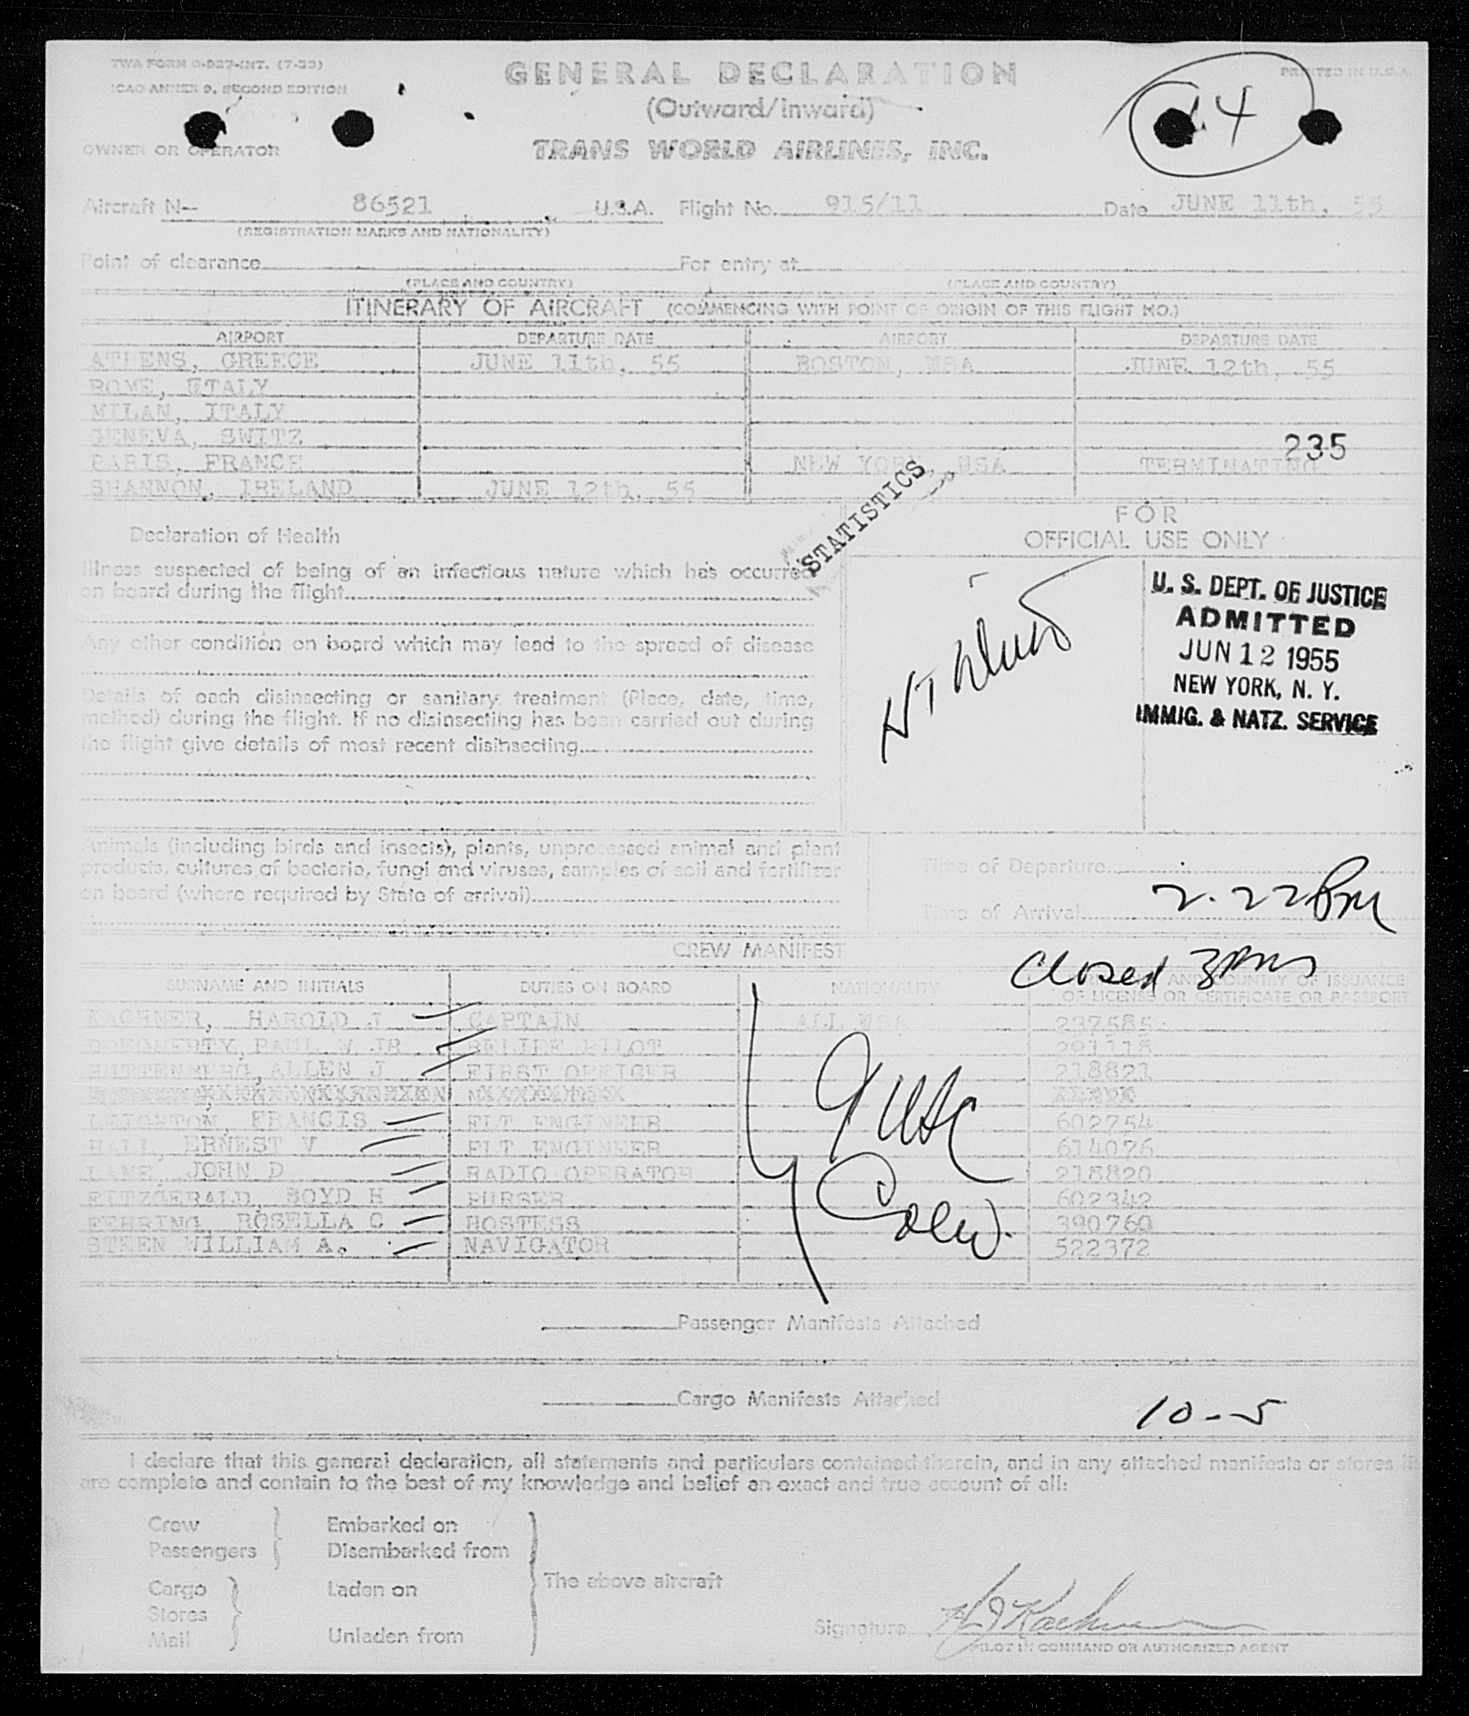 TWA FORM O-927-INT. (7-53)
ICAO ANNEX 9, SECOND EDITION
PRINTED IN U.S.A.
GENERAL DECLARATION
(Outward/Inward)
14
OWNER OR OPERATOR
TRANS WORLD AIRLINES, INC.
Aircraft N- 86521 U.S.A. Flight No. 915/11 Date JUNE 11th, 55
(REGISTRATION MARKS AND NATIONALITY)
Point of clearance For entry at
(PLACE AND COUNTRY) (PLACE AND COUNTRY)
ITINERARY OF AIRCRAFT (COMMENCING WITH POINT OF ORIGIN OF THIS FLIGHT NO.)
AIRPORT DEPARTURE DATE AIRPORT DEPARTURE DATE
ATHENS, GREECE JUNE 11th, 55 BOSTON, USA JUNE 12th, 55
ROME, ITALY
MILAN, ITALY
GENEVA, SWITZ
235
PARIS, FRANCE NEW YORK, USA TERMINATING
SHANNON, IRELAND JUNE 12th, 55
STATISTICS
FOR
OFFICIAL USE ONLY
Declaration of Health
Illness suspected of being of an infectious nature which has occurred
on board during the flight
Any other condition on board which may lead to the spread of disease
Details of each disinsecting or sanitary treatment (Place, date, time,
method) during the flight. If no disinsecting has been carried out during
the flight give details of most recent disinsecting
U. S. DEPT. OF JUSTICE
ADMITTED
JUN 12 1955
NEW YORK, N. Y.
IMMIG. & NATZ. SERVICE
Animals (including birds and insects), plants, unprocessed animal and plant
products, cultures of bacteria, fungi and viruses, samples of soil and fertilizer
on board (where required by State of arrival)
Time of Departure
Time of Arrival 2.22 Pm
Closed 3 Pm
CREW MANIFEST
SURNAME AND INITIALS DUTIES ON BOARD NATIONALITY AND COUNTRY OF ISSUANCE
OF LICENSE OR CERTIFICATE OR PASSPORT
KAEHNER, HAROLD J CAPTAIN ALL USA 237585
DOUGHERTY, PAUL W JR RELIEF PILOT 291118
RUTTENBERG, ALLEN J FIRST OFFICER 218821
LEIGHTON, FRANCIS FLT ENGINEER 602754
HALL, ERNEST V FLT ENGINEER 614076
LANE, JOHN D RADIO OPERATOR 218820
FITZGERALD, BOYD H PURSER 602342
FEHRING, ROSELLA C HOSTESS 390760
STEEN WILLIAM A. NAVIGATOR 522372
9 USC
Crew.
Passenger Manifests Attached
Cargo Manifests Attached
10-5
I declare that this general declaration, all statements and particulars contained therein, and in any attached manifests or stores
are complete and contain to the best of my knowledge and belief an exact and true account of all:
Crew Embarked on
Passengers Disembarked from
The above aircraft
Cargo Laden on
Stores
Mail Unladen from
Signature H J Kaehner
PILOT IN COMMAND OR AUTHORIZED AGENT